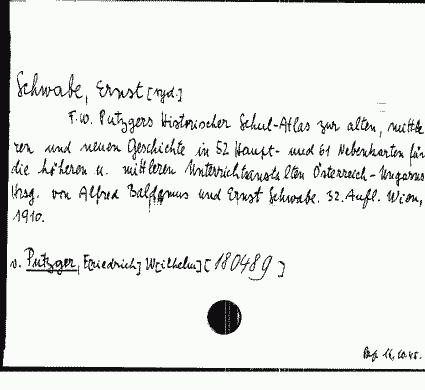 Schwabe, Ernst [wyd.]
F.W. Putzgers Historischer Schul-Atlas zur alten, mittle
ren und neuen Geschichte in 52 Haupt- und 61 Nebenkarten für
die höheren u. mittleren Unterrichtsanstalten Österreich-Ungarns
Hrsg. von Alfred Baldamus und Ernst Schwabe. 32. Aufl. Wien,
1910.
v. Putzger, F[riedrich] W[ilhelm] [180489]